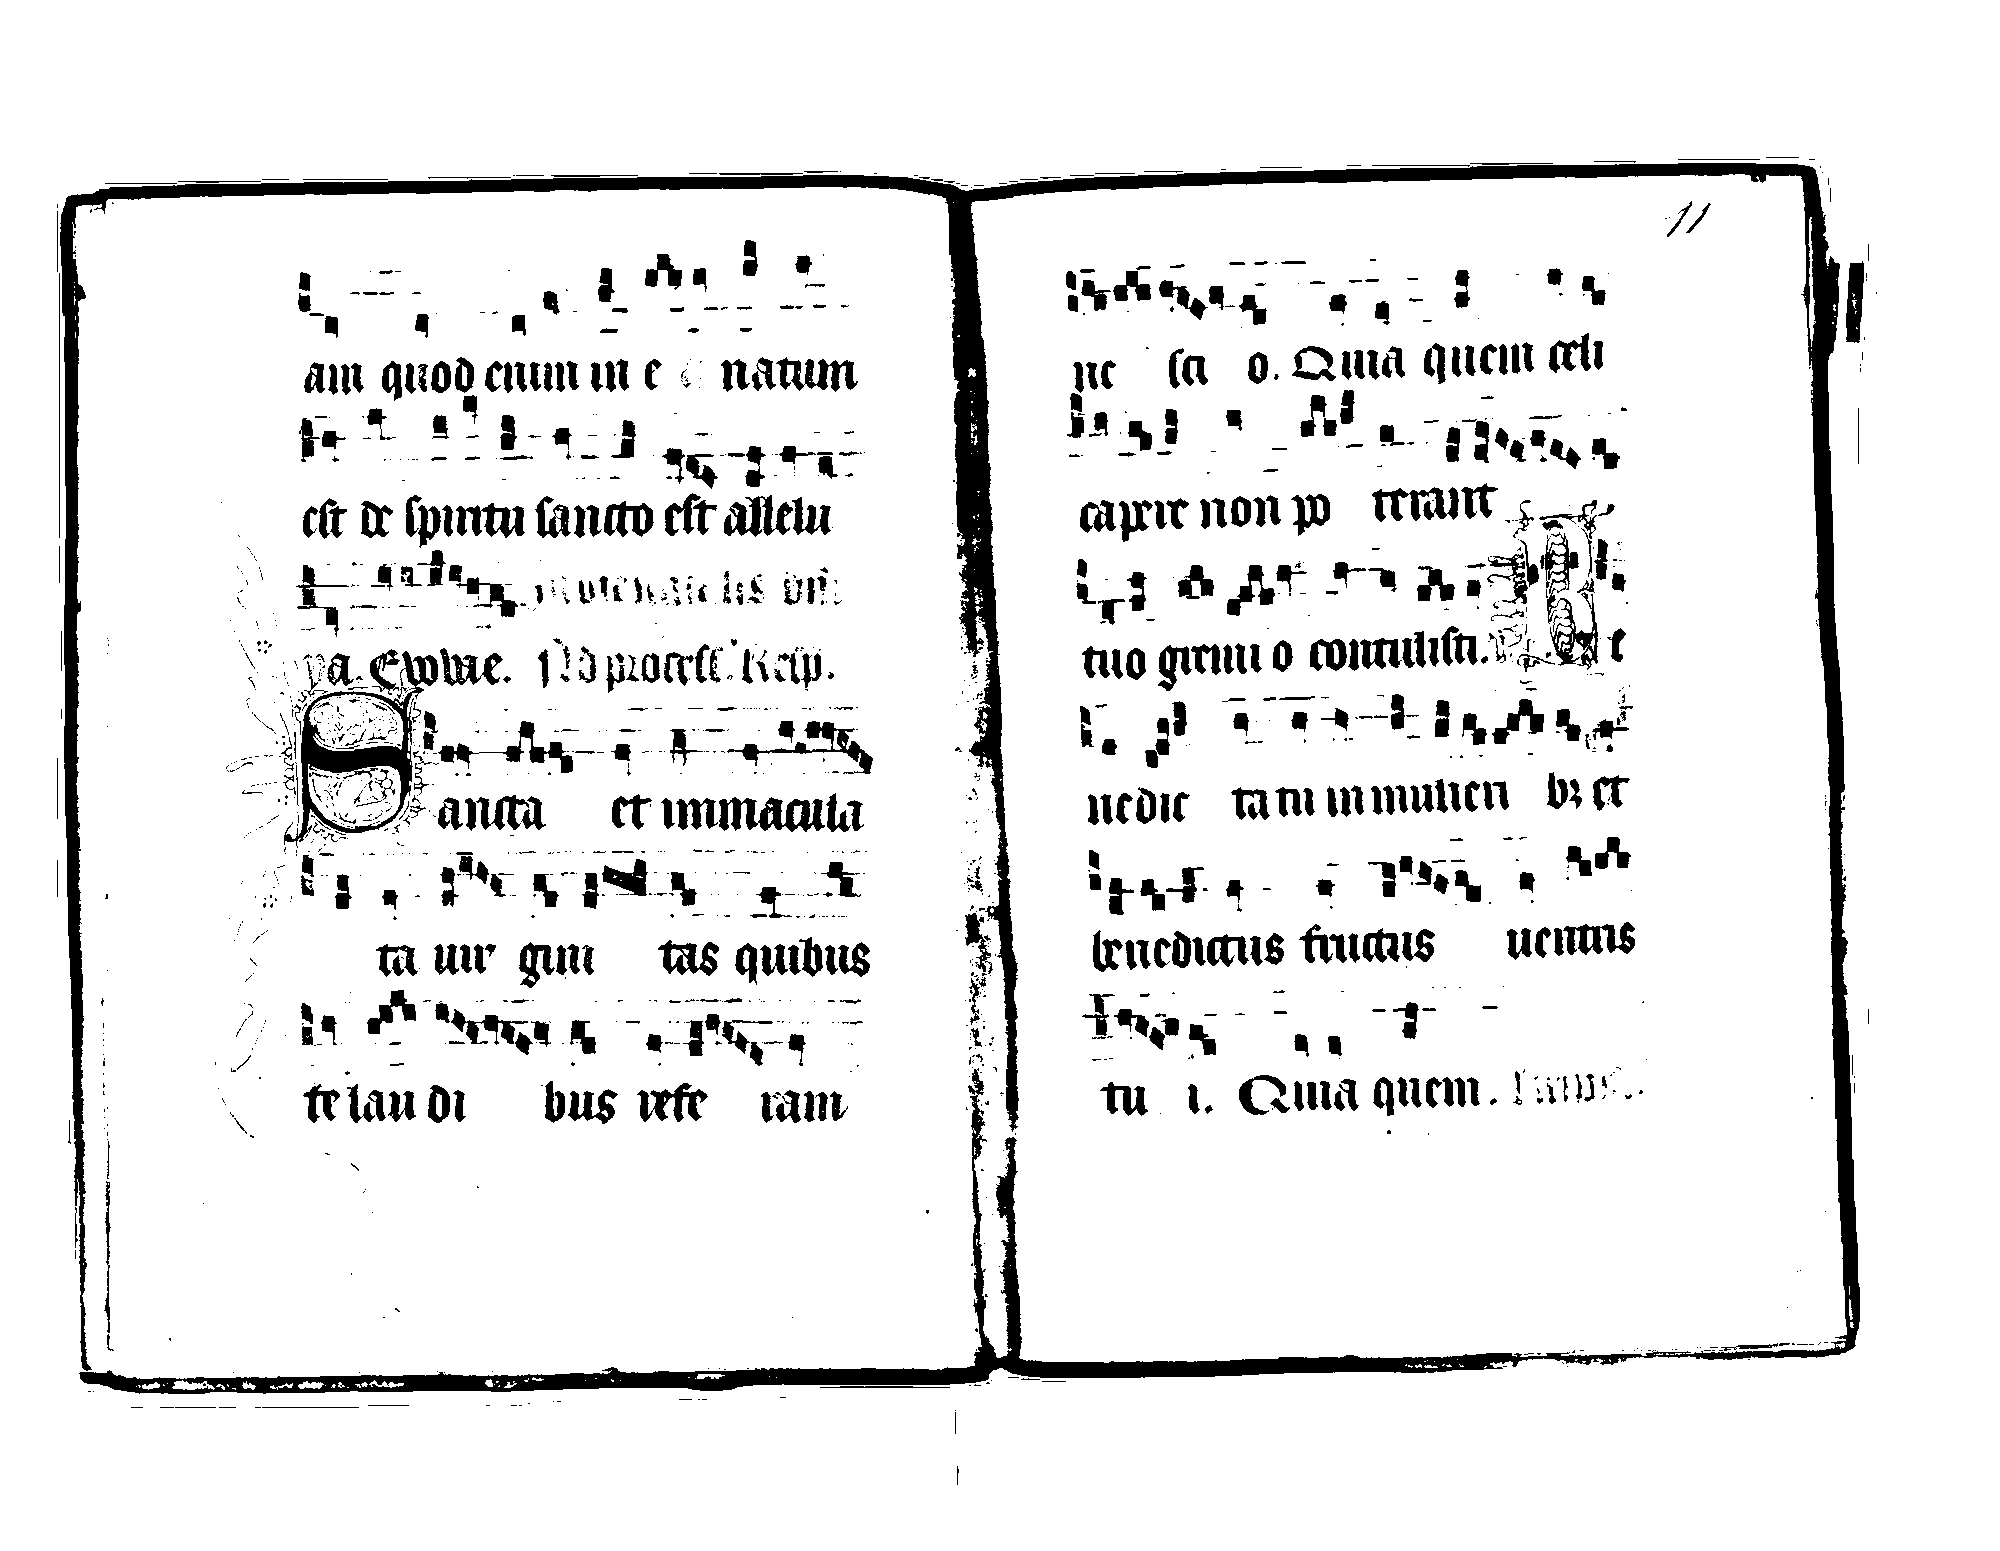 am quod enim in e natum
est de spiritu sancto est allelu
ya. Evovae. Ad process. Resp.
Sancta et immacula
ta uir gini tas quibus
te lau di bus refe ram
11
ne sci o. Quia quem celi
capere non po terant
tuo gremi o contulisti. Be
nedic ta tu in mulieri bꝫ et
benedictus fructus uentris
tu i. Quia quem.